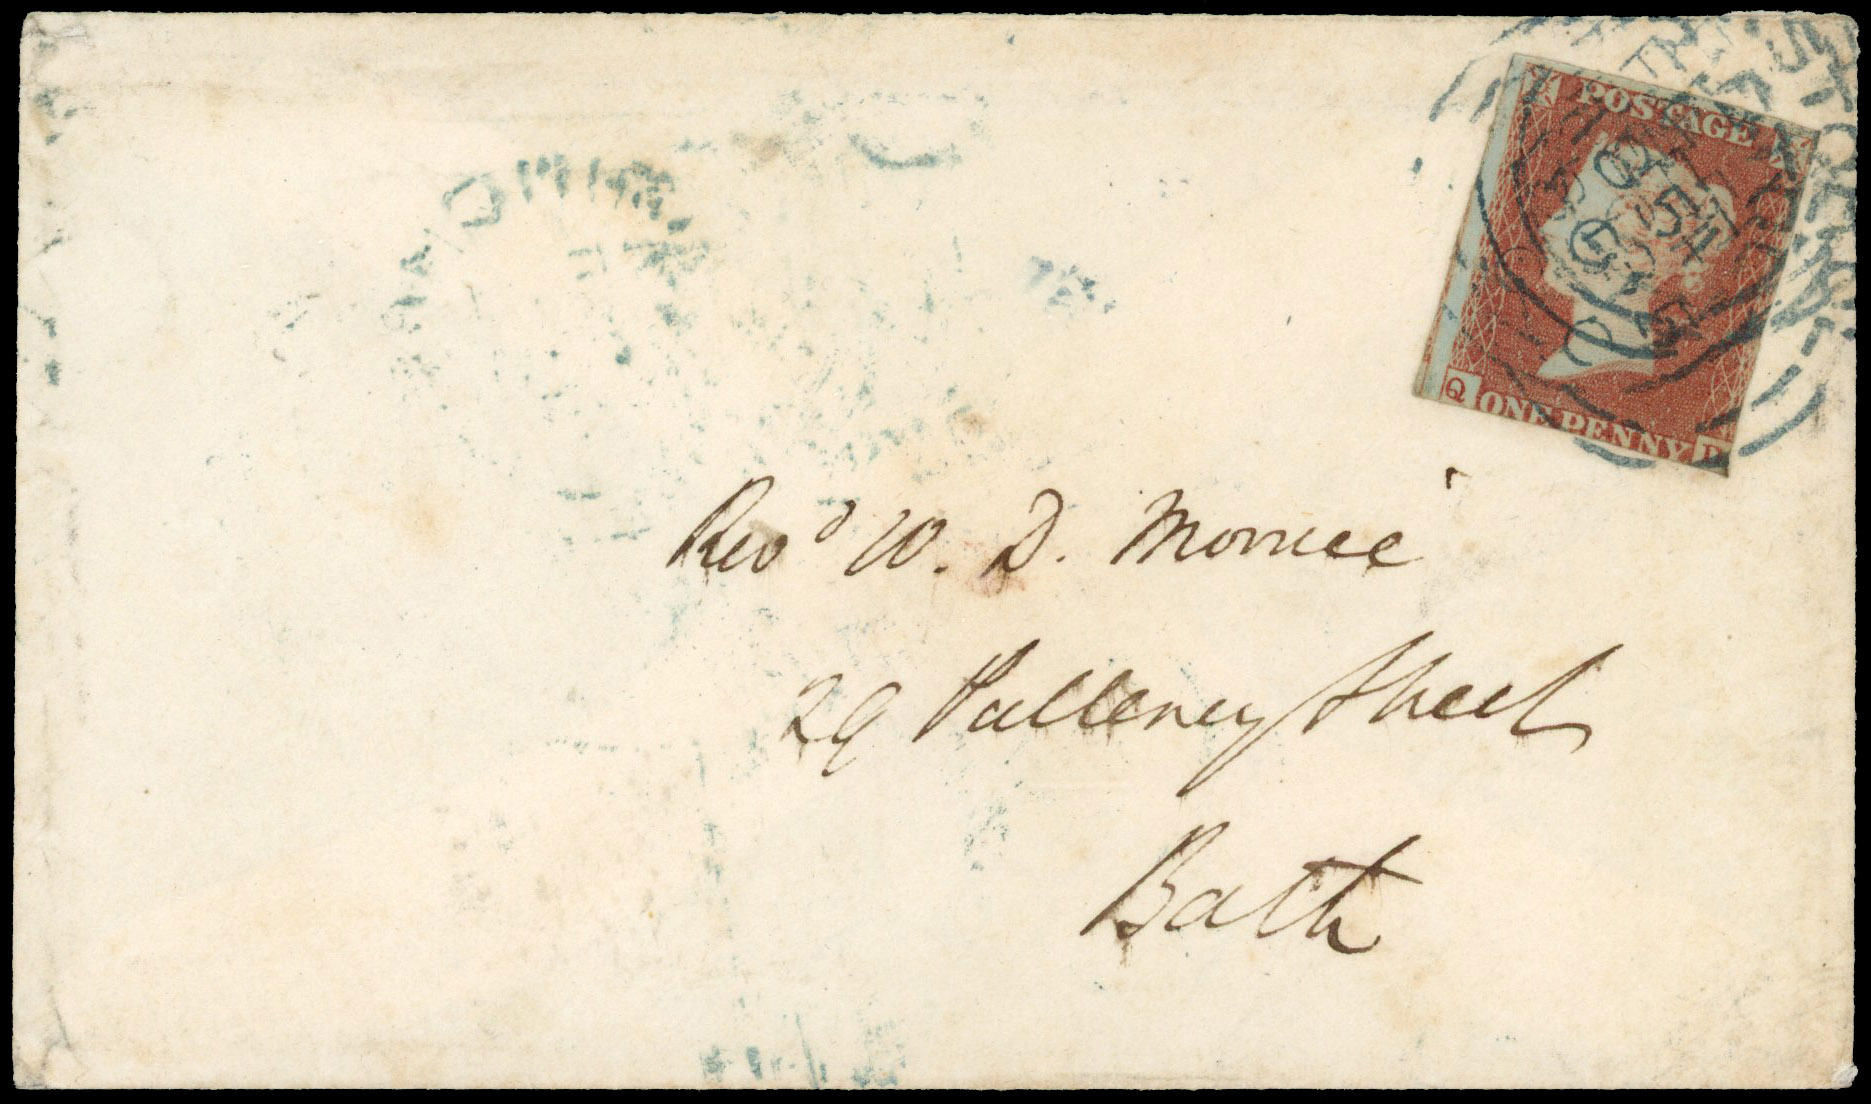 POSTAGE
Q ONE PENNY D
Revd W. D. Morrice
29 Pulteney Street
Bath